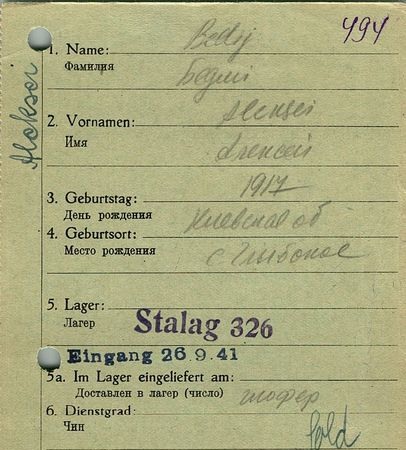 494
1. Name:
Фамилия
2. Vornamen:
Имя
1917
3. Geburtstag:
День рождения
Киевская об
4. Geburtsort:
Место рождения
с Глибокое
5. Lager:
Лагер
Stalag 326
Eingang 26.9.41
5a. Im Lager eingeliefert am:
Доставлен в лагер (число)
шофер
6. Dienstgrad:
Чин
Sold